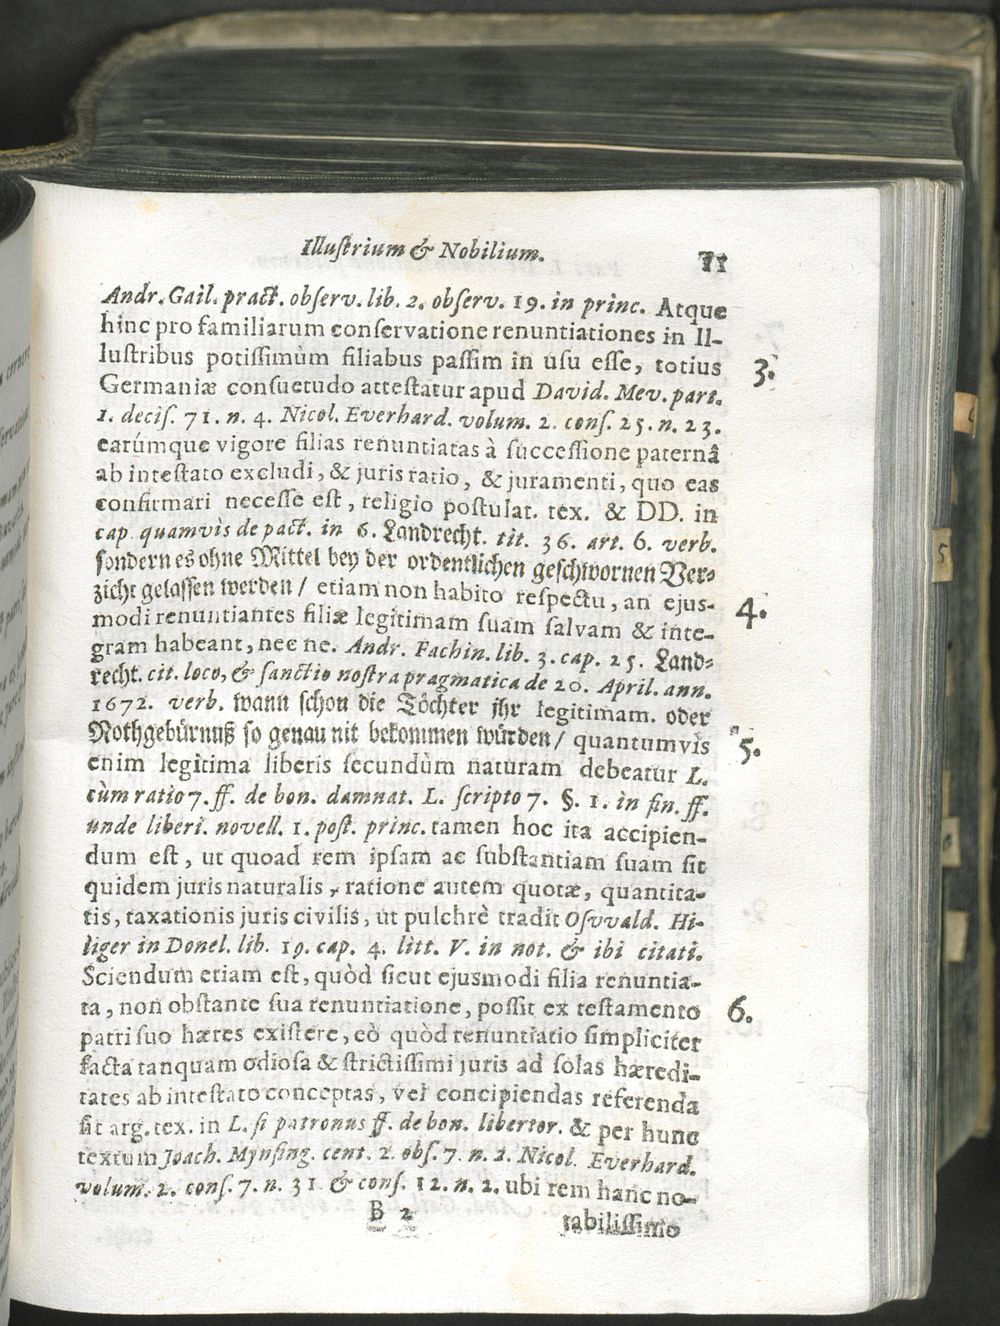 Illuſtrium & Nobilium. 71
Andr. Gail. pract. obſerv. lib. 2. obſerv. 19. in princ. Atque
hinc pro familiarum conſervatione renuntiationes in Il-
luſtribus potiſſimùm filiabus paſſim in uſu eſſe, totius 3.
Germaniæ conſuetudo atteſtatur apud David. Mev. part.
1. deciſ. 71. n. 4. Nicol. Everhard. volum. 2. conſ. 25. n. 23.
earúmque vigore filias renuntiatas à ſucceſſione paternâ
ab inteſtato excludi, & juris ratio, & juramenti, quo eas
confirmari neceſſe eſt, religio poſtulat. tex. & DD. in
cap. quamvìs de pact. in 6. Landrecht. tit. 36. art. 6. verb.
ſondern es ohne Mittel bey der ordentlichen geſchwornen Ver-
zicht gelaſſen werden / etiam non habito reſpectu, an ejus-
modi renuntiantes filiæ legitimam ſuam ſalvam & inte- 4.
gram habeant, nec ne. Andr. Fachin. lib. 3. cap. 25. Land-
recht. cit. loco, & ſanctio noſtra pragmatica de 20. April. ann.
1672. verb. wann ſchon die Töchter jhr legitimam. oder
Nothgebürnuß ſo genau nit bekommen würden / quantumvìs 5.
enim legitima liberis ſecundùm naturam debeatur L.
cùm ratio 7. ff. de bon. damnat. L. ſcripto 7. §. 1. in fin. ff.
unde liberi. novell. 1. poſt. princ. tamen hoc ita accipien-
dum eſt, ut quoad rem ipſam ac ſubſtantiam ſuam ſit
quidem juris naturalis, ratione autem quotæ, quantita-
tis, taxationis juris civilis, ut pulchrè tradit Oſvvald. Hi-
liger in Donel. lib. 19. cap. 4. litt. V. in not. & ibi citati.
Sciendum etiam eſt, quòd ſicut ejusmodi filia renuntia-
ta, non obſtante ſua renuntiatione, poſſit ex teſtamento 6.
patri ſuo hæres exiſtere, eò quòd renuntiatio ſimpliciter
facta tanquam odioſa & ſtrictiſſimi juris ad ſolas hæredi-
tates ab inteſtato conceptas, vel concipiendas referenda
ſit arg. tex. in L. ſi patronus ff. de bon. libertor. & per hunc
textum Joach. Mynſing. cent. 2. obſ. 7. n. 2. Nicol. Everhard.
volum. 2. conſ. 7. n. 31 & conſ. 12. n. 2. ubi rem hanc no-
B 2 tabiliſſimo